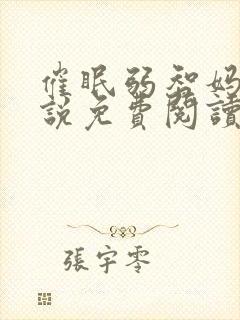 催眠弱智妈
說免費閱讀
張宇零